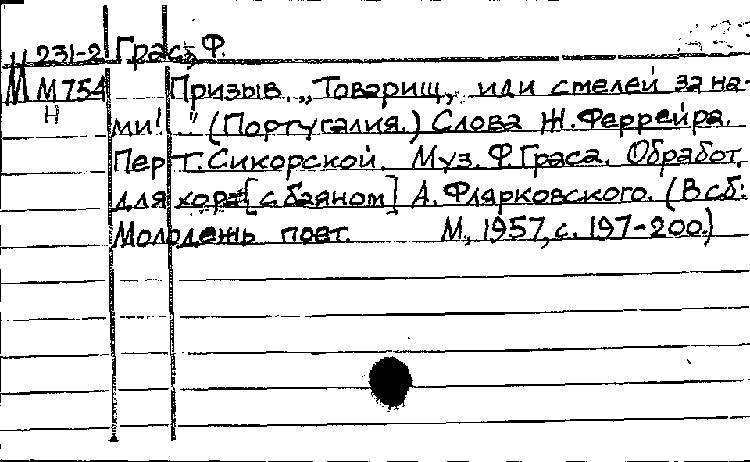 231-2 Грас, Ф.
М М754 Призыв. „Товарищ, иди смелей за на-
Н ми! “ (Португалия.) Слова Ж. Феррейра.
Пер Т. Сикорской. Муз. Ф. Граса. Обработ.
для хора [с баяном] А. Флярковского. (В сб:
Молодежь поет. М, 1957, с. 197-200.)